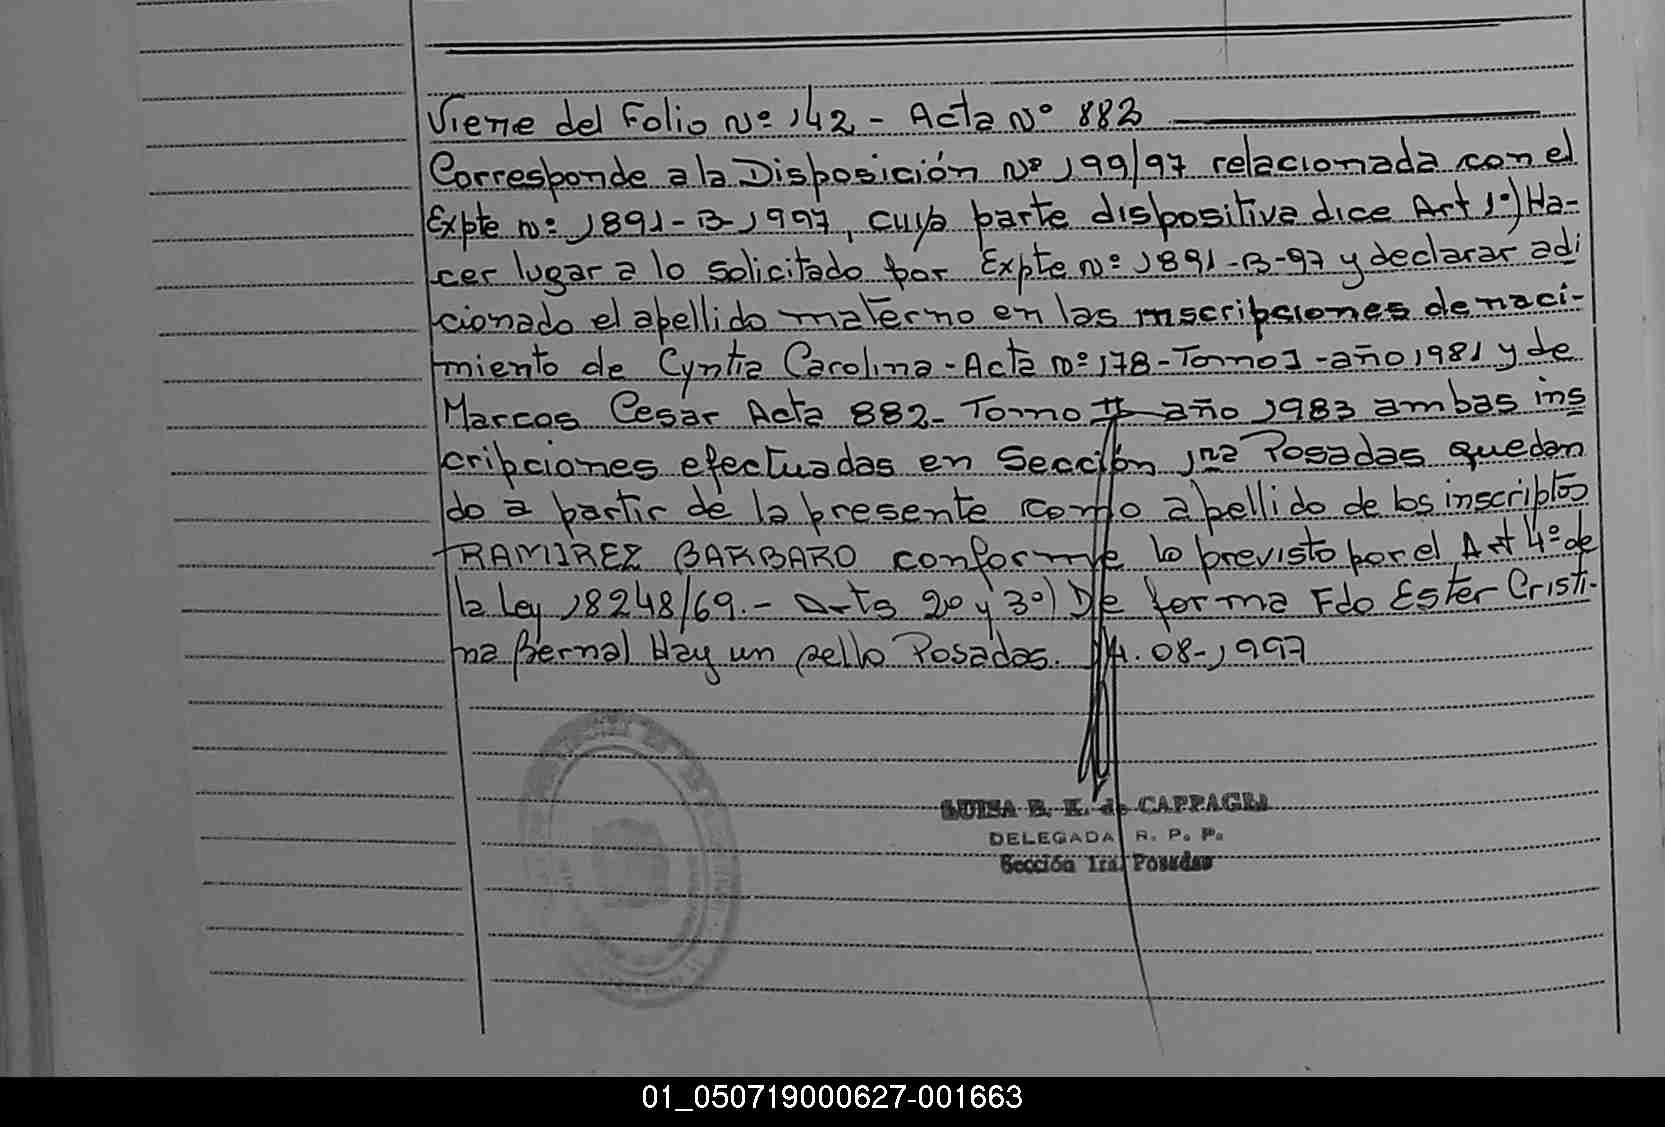 Viene del Folio Nº 142 - Acta Nº 882
Corresponde a la Disposición Nº 199/97 relacionada con el
Expte nº 1891-B-1997, cuya parte dispositiva dice Art 1º) Ha-
cer lugar a lo solicitado por Expte nº 1891-B-97 y declarar adi
cionado el apellido materno en las inscripciones de naci-
miento de Cyntia Carolina - Acta nº 178 - Tomo I - año 1981 y de
Marcos Cesar Acta 882 - Tomo II año 1983 ambas ins
cripciones efectuadas en Sección 1ra Posadas quedan
do a partir de la presente como apellido de los inscriptos
RAMIREZ BARBARO conforme lo previsto por el Art 4º de
la Ley 18248/69.- Arts 2º y 3º) De forma Fdo Ester Cristi-
na Bernal Hay un sello Posadas. 14.08-1997
LUISA E. K. de CAPPAGLI
DELEGADA R. P. P.
Sección 1ra. Posadas
01_050719000627-001663